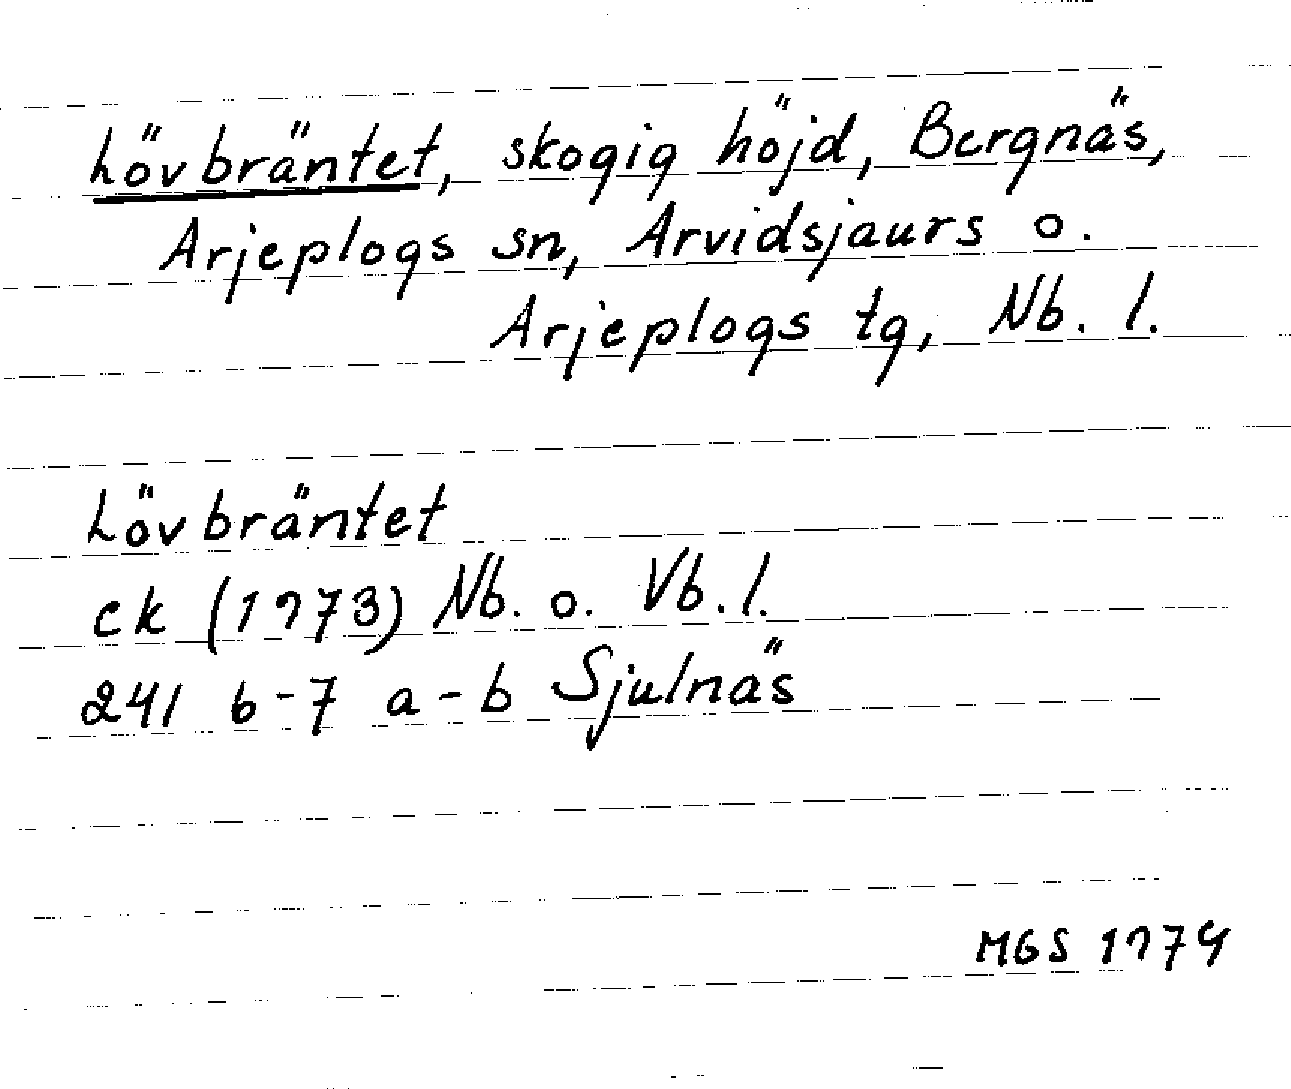 Lövbräntet, skogig höjd, Bergnäs,
Arjeplogs sn, Arvidsjaurs o.
Arjeplogs tg, Nb. l.
Lövbräntet
ek (1973) Nb. o. Vb. l.
241 6-7 a-b Sjulnäs
MGS 1974